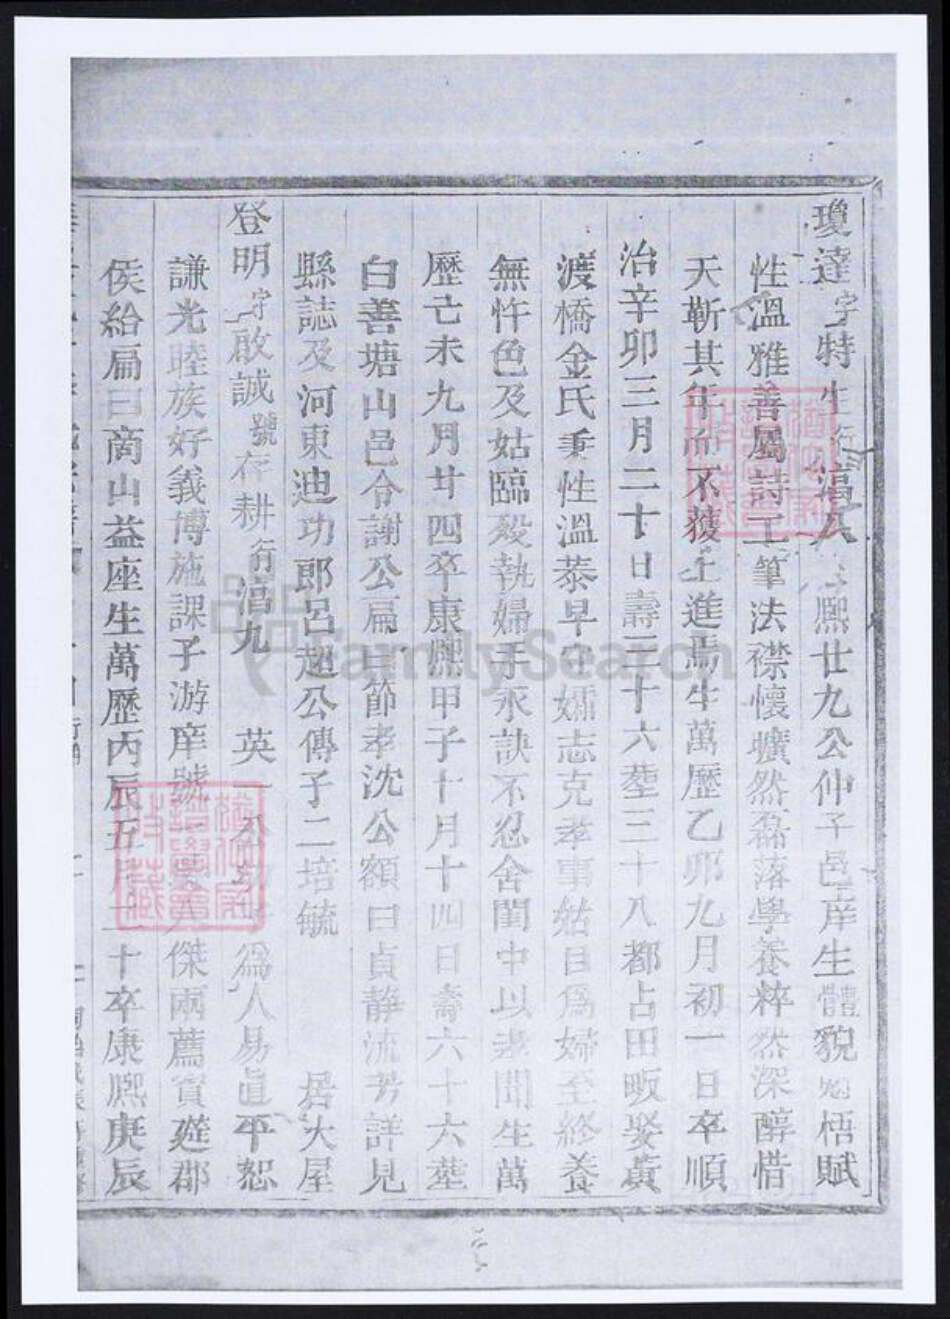 瓊達字特生行湻八熙廿九公仲子邑庠生體貌魁梧賦
性溫雅善屬詩工筆法襟懷壙然磊落學養粹然深醇惜
天靳其年而不獲上進焉生萬歷乙卯九月初一日卒順
治辛卯三月二十日壽三十六塟三十八都占田畈娶黃
渡橋金氏秉性溫恭早守孀志克孝事姑自爲婦至終養
無忤色及姑臨歿執婦手永訣不忍舍閨中以孝聞生萬
歷己未九月廿四卒康熙甲子十月十四日壽六十六塟
白善塘山邑令謝公扁曰節孝沈公額曰貞静流芳詳見
縣誌及河東迪功郎呂超公傳子二培毓 居大屋
登明字啟誠號存耕行湻九 英一公 爲人易直平恕
謙光睦族好義博施課子游庠號 傑兩薦賓筵郡
侯給扁曰商山益座生萬歷丙辰五月二十卒康熙庚辰
FamilySearch